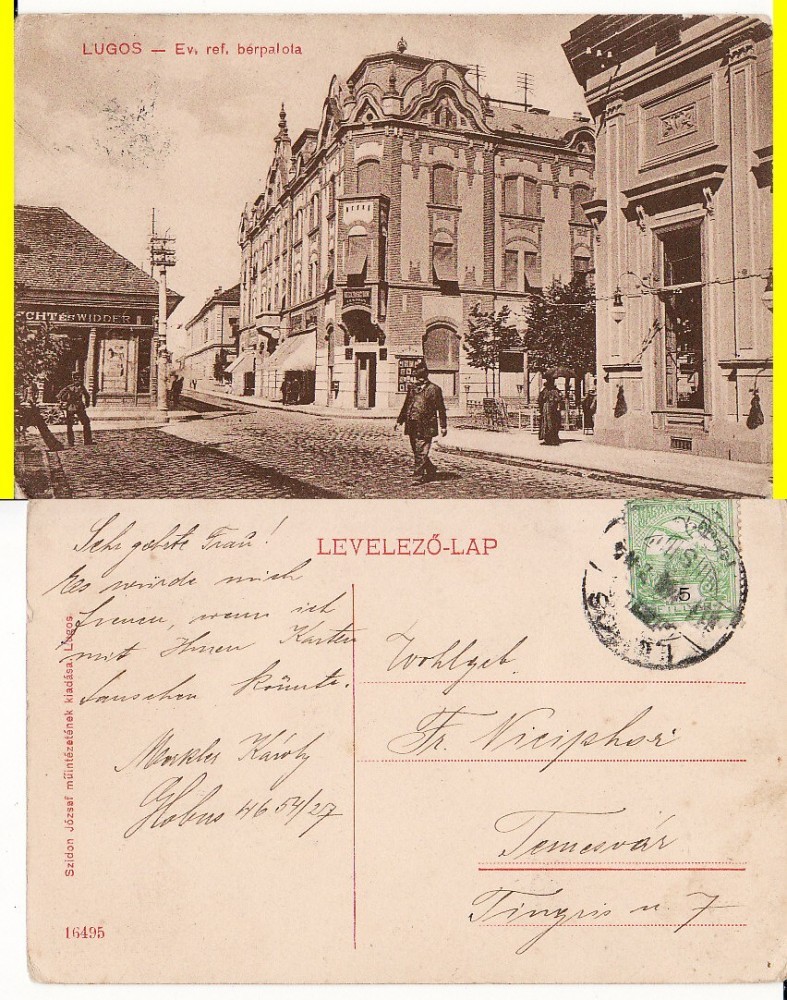 LUGOS — Ev. ref. bérpalota
CHT és WIDDER
LEVELEZŐ-LAP
Sehr geehrte Frau!
Es würde mich
freuen, wenn ich
mit Ihnen Karten
tauschen könnte.
Károly
Globus 4654/27
Wohlgeb.
Fr. Niciphor
Temesvár
u. 7
5
LUGOS
Szidon József műintézetének kiadása, Lugos.
16495